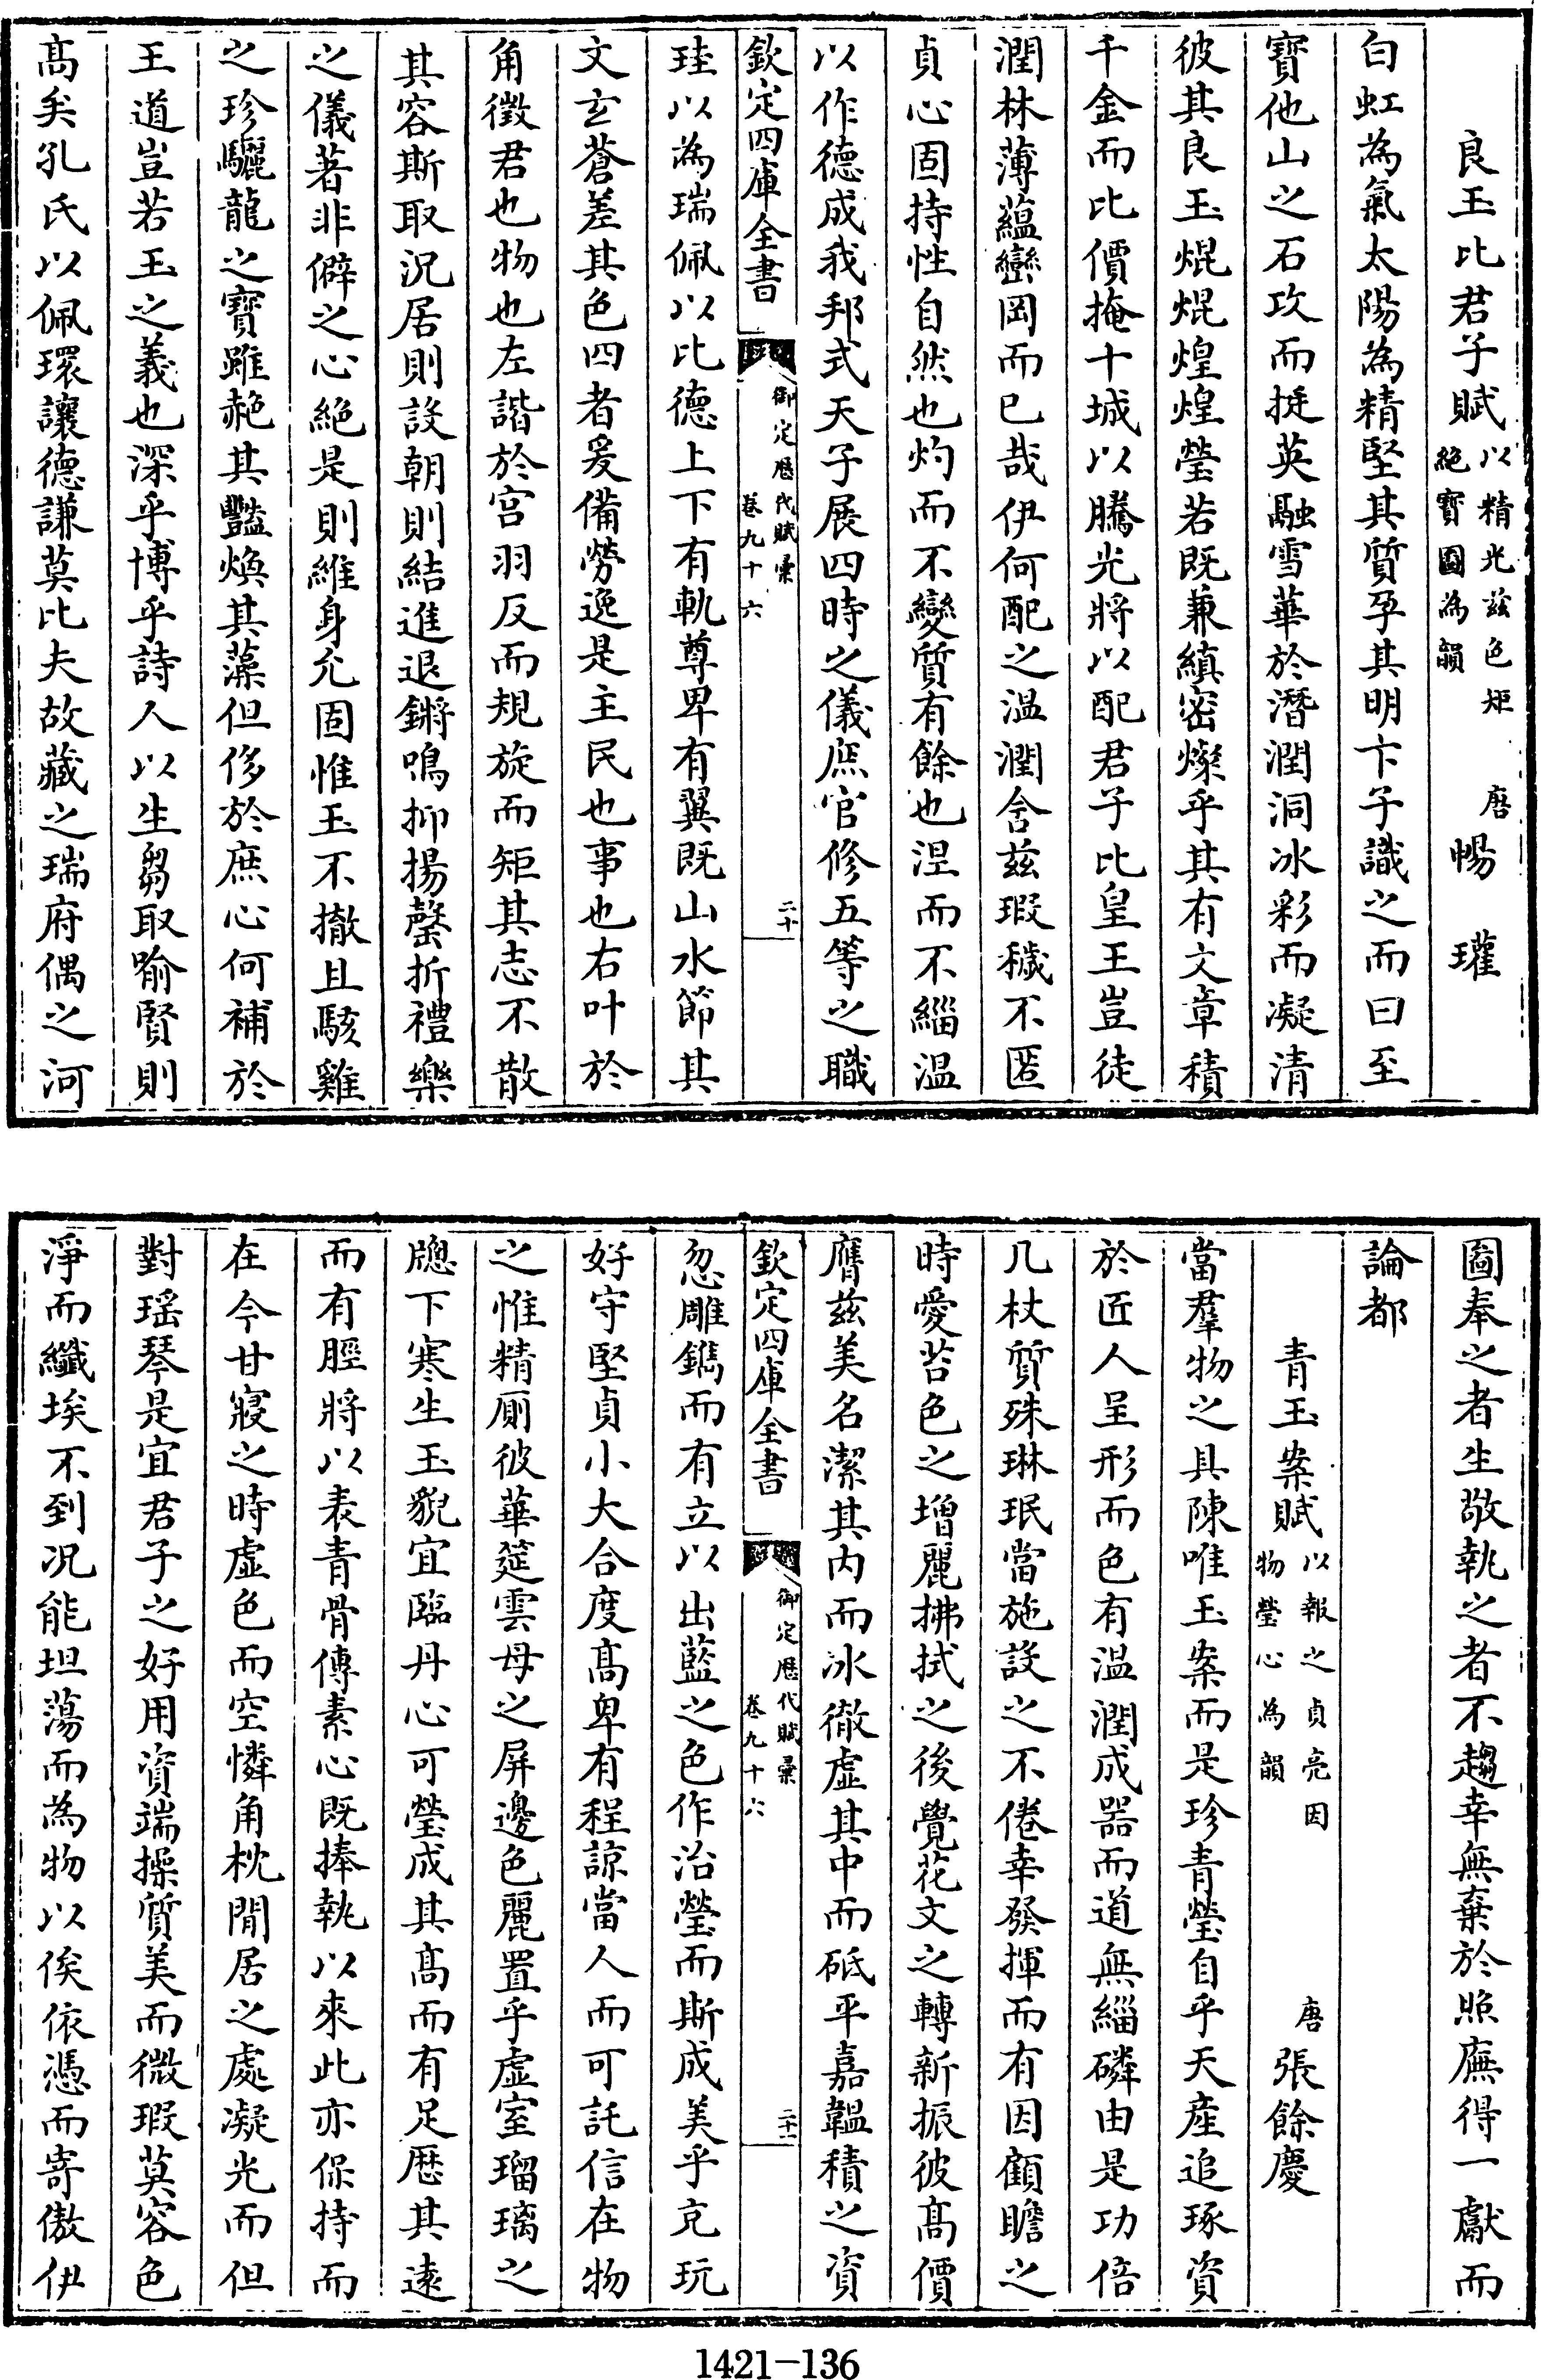 良玉比君子賦以精光兹色矩絕寳圖為韻 唐暢璀
白虹為氣太陽為精堅其質孕其明卞子識之而曰至
寳他山之石攻而挻英融雪華於潛潤洞冰彩而凝清
彼其良玉焜焜煌煌瑩若既兼縝密燦乎其有文章積
千金而比價掩十城以騰光將以配君子比皇王豈徒
潤林薄藴巒岡而已哉伊何配之温潤含兹瑕穢不匿
貞心固持性自然也灼而不變質有餘也涅而不緇温
以作德成我邦式天子展四時之儀庶官修五等之職
欽定四庫全書 御定歴代賦彚 卷九十六 二十
珪以為瑞佩以比德上下有軌尊卑有翼既山水節其
文玄蒼差其色四者爰備勞逸是主民也事也右叶於
角徵君也物也左諧於宫羽反而規旋而矩其志不散
其容斯取況居則設朝則結進退鏘鳴抑揚罄折禮樂
之儀著非僻之心絶是則維身允固惟玉不撤且駭雞
之珍驪龍之寳雖赩其豔煥其藻但侈於庶心何補於
王道豈若玉之義也深乎博乎詩人以生芻取喻賢則
髙矣孔氏以佩環讓德謙莫比夫故藏之瑞府偶之河
圖奉之者生敬執之者不趨幸無棄於照廡得一獻而
論都
青玉案賦以報之貞亮因物瑩心為韻 唐張餘慶
當羣物之具陳唯玉案而是珍青瑩自乎天産追琢資
於匠人呈形而色有温潤成器而道無緇磷由是功倍
几杖質殊琳珉當施設之不倦幸發揮而有因顧瞻之
時愛苔色之増麗拂拭之後覺花文之轉新振彼髙價
膺兹美名潔其内而冰徹虚其中而砥平嘉韞積之資
欽定四庫全書 御定歴代賦彚 卷九十六 二十一
忽雕鐫而有立以出藍之色作治瑩而斯成美乎克玩
好守堅貞小大合度髙卑有程諒當人而可託信在物
之惟精厠彼華筵雲母之屏邊色麗置乎虚室瑠璃之
牎下寒生玉貌宜臨丹心可瑩成其髙而有足歴其逺
而有脛將以表青骨傳素心既捧執以來此亦保持而
在今甘寢之時虚色而空憐角枕閒居之處凝光而但
對瑶琴是宜君子之好用資端操質美而微瑕莫容色
淨而纖埃不到況能坦蕩而為物以俟依憑而寄傲伊
1421-136